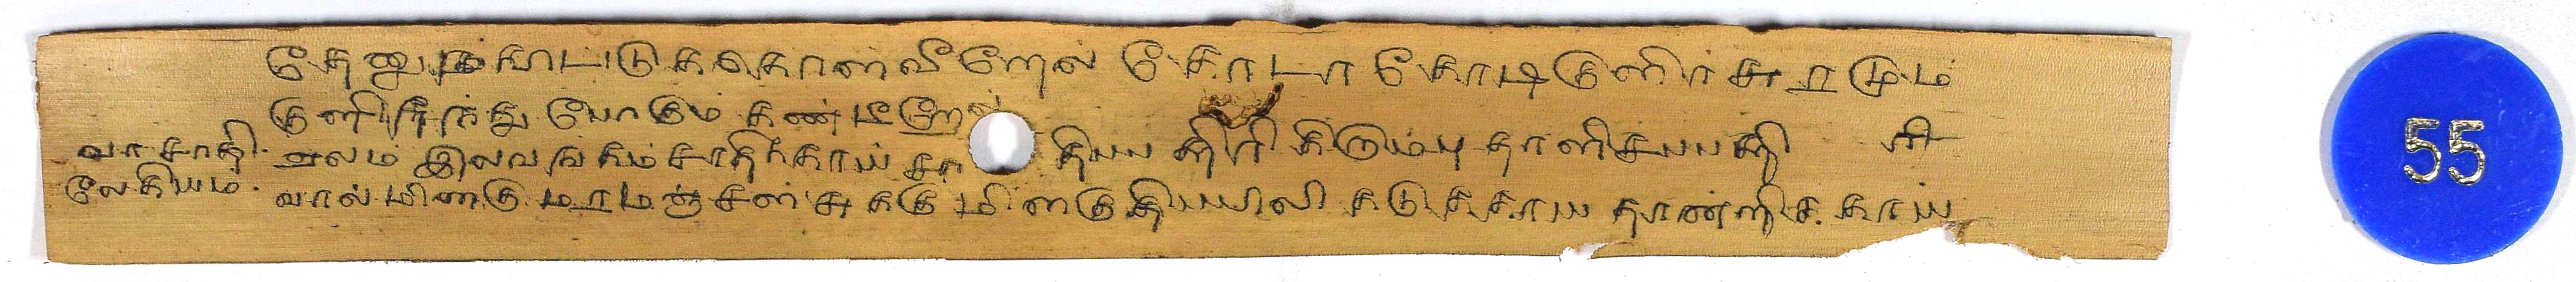 தேனுமவிட்டுக்கொள்வீரேல் கோடா கோடிகுளிர்சுரமும்
குளிர்ந்து போகும் கண்டீரே
வாசாதி. ஏலம் இலவங்கம் சாதிக்காய் திப்பிலி தாளிசபபத்திரி
லேகியம். வால்மிளகு மரமஞ்சள் சுககு மிளகு திப்பிலி கடுக்காய தான்றிக்காய்
55